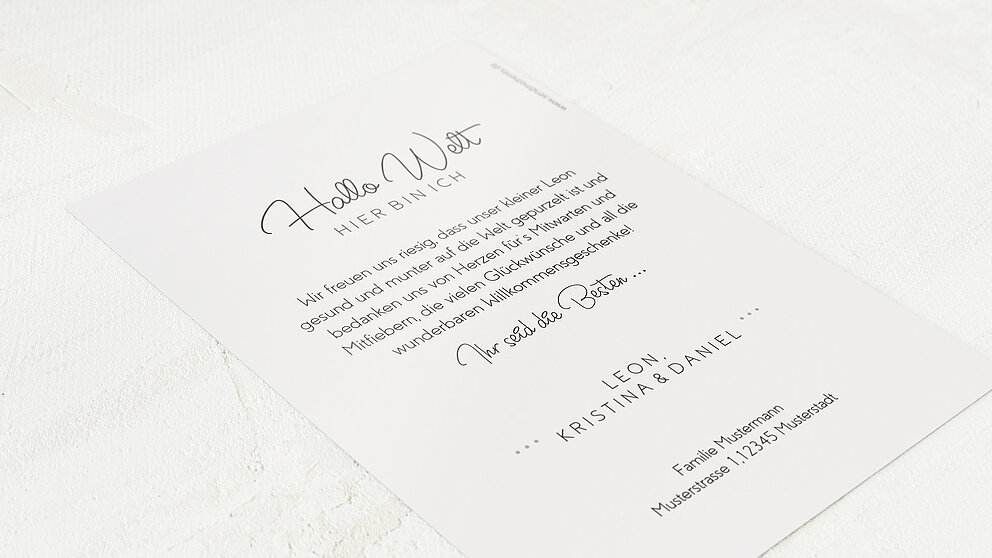 Hallo Welt
HIER BIN ICH
Wir freuen uns riesig, dass unser kleiner Leon
gesund und munter auf die Welt gepurzelt ist und
bedanken uns von Herzen für's Mitwarten und
Mitfiebern, die vielen Glückwünsche und all die
wunderbaren Willkommensgeschenke!
Ihr seid die Besten ...
LEON,
KRISTINA & DANIEL
Familie Mustermann
Musterstrasse 1, 12345 Musterstadt